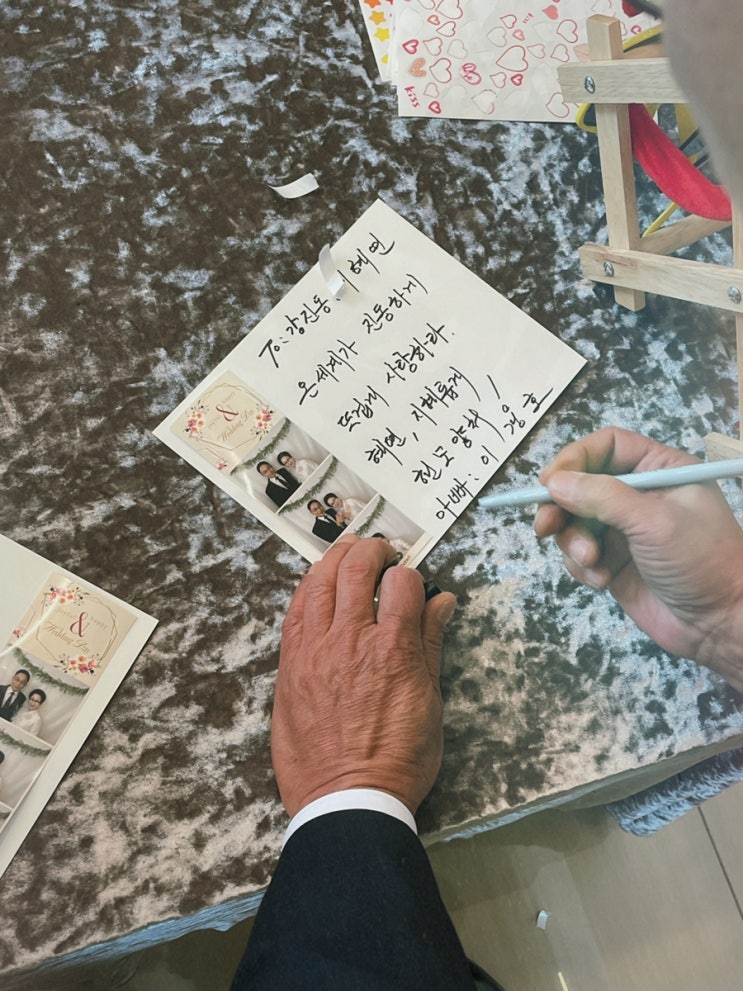 kiss
To: 강진동 이혜연
온세계가 진동하게
뜨겁게 사랑하라.
혜연, 지혜롭게
현모양처!
아빠: 이경호
&
Wedding Day
&
Wedding Day